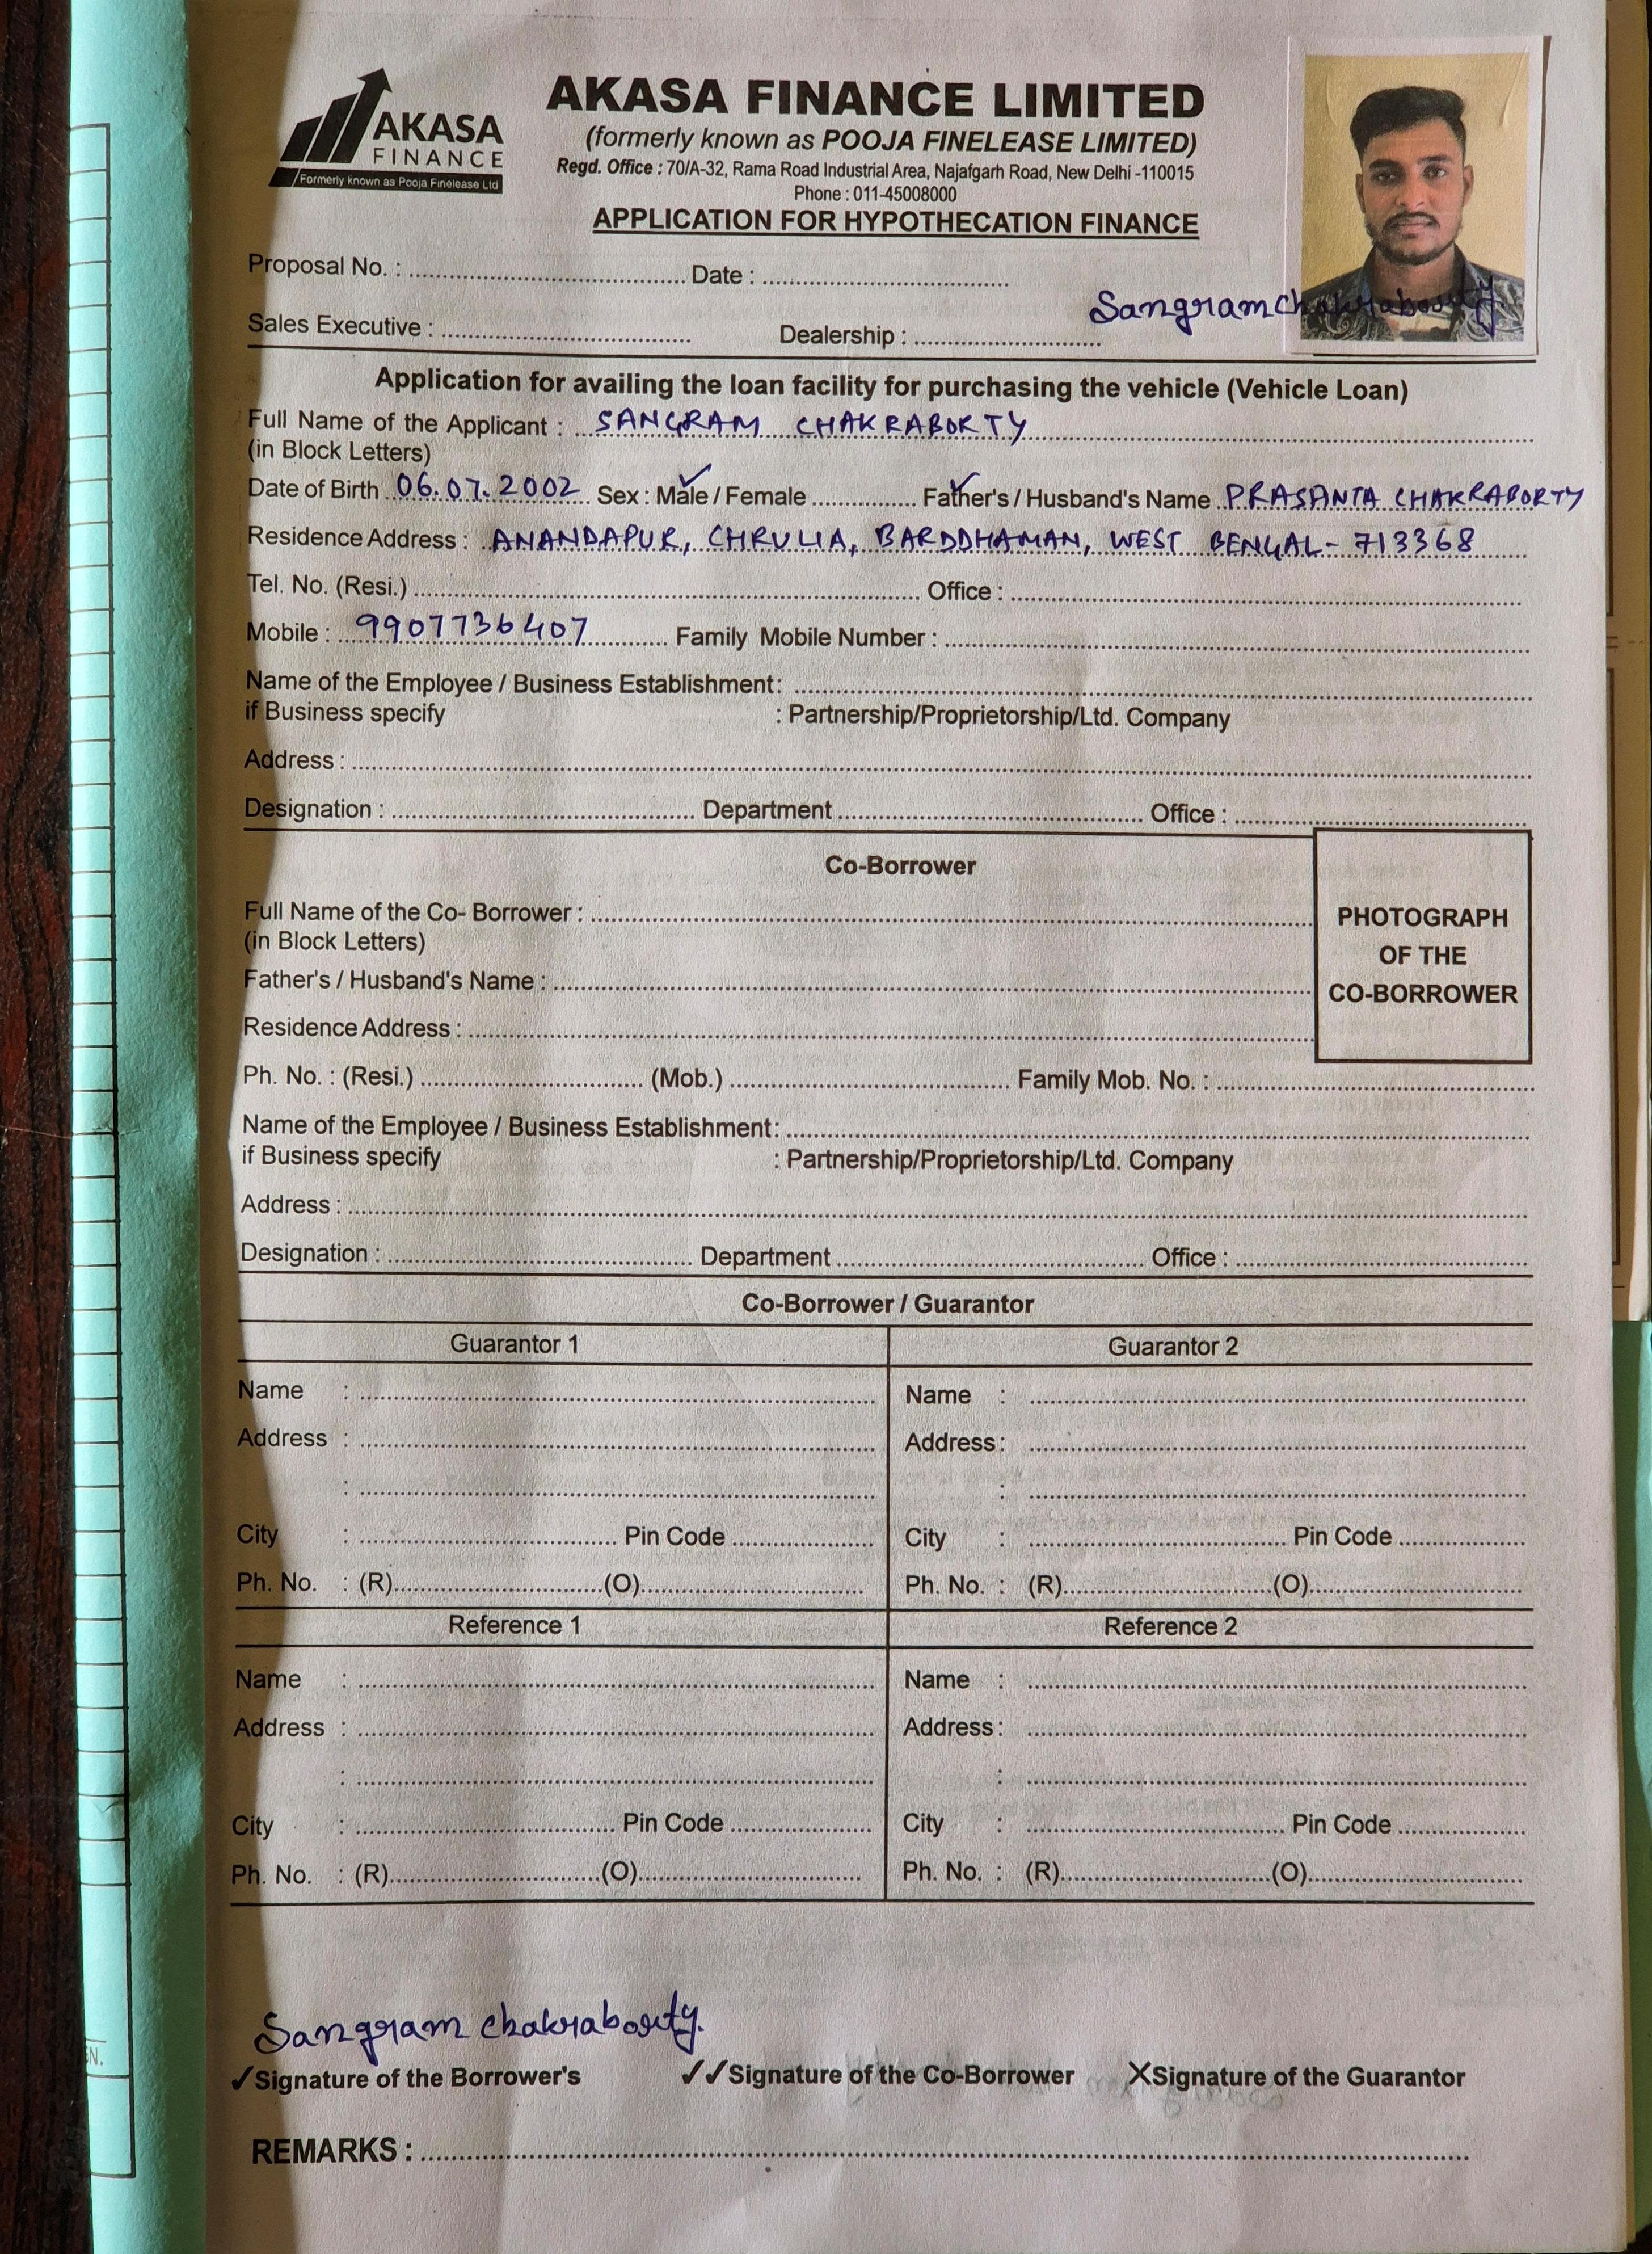 AKASA
FINANCE
Formerly known as Pooja Finelease Ltd
AKASA FINANCE LIMITED
(formerly known as POOJA FINELEASE LIMITED)
Regd. Office : 70/A-32, Rama Road Industrial Area, Najafgarh Road, New Delhi -110015
Phone : 011-45008000
APPLICATION FOR HYPOTHECATION FINANCE
Proposal No. : Date :
Sangram chakraborty
Sales Executive : Dealership :
Application for availing the loan facility for purchasing the vehicle (Vehicle Loan)
Full Name of the Applicant : SANGRAM CHAKRABORTY
(in Block Letters)
Date of Birth 06.07.2002 Sex : Male / Female Father's / Husband's Name PRASANTA CHAKRABORTY
Residence Address : ANANDAPUR, CHRULIA, BARDDHAMAN, WEST BENGAL- 713368
Tel. No. (Resi.) Office :
Mobile : 9907736407 Family Mobile Number :
Name of the Employee / Business Establishment:
if Business specify : Partnership/Proprietorship/Ltd. Company
Address :
Designation : Department Office :
Co-Borrower
Full Name of the Co- Borrower :
(in Block Letters)
Father's / Husband's Name :
Residence Address :
PHOTOGRAPH
OF THE
CO-BORROWER
Ph. No. : (Resi.) (Mob.) Family Mob. No. :
Name of the Employee / Business Establishment:
if Business specify : Partnership/Proprietorship/Ltd. Company
Address :
Designation : Department Office :
Co-Borrower / Guarantor
Guarantor 1 Guarantor 2
Name : Name :
Address : Address :
: :
City : Pin Code City : Pin Code
Ph. No. : (R) (O) Ph. No. : (R) (O)
Reference 1 Reference 2
Name : Name :
Address : Address :
: :
City : Pin Code City : Pin Code
Ph. No. : (R) (O) Ph. No. : (R) (O)
Sangram chakraborty.
✓Signature of the Borrower's ✓✓Signature of the Co-Borrower XSignature of the Guarantor
REMARKS :